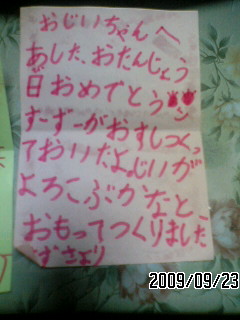 おじいちゃんへ
あした、おたんじょう
日おめでとう
すーずーがおすしつくっ
ておいたよじいが
よろこぶかなーと、
おもってつくりました
ずさより
2009/09/23